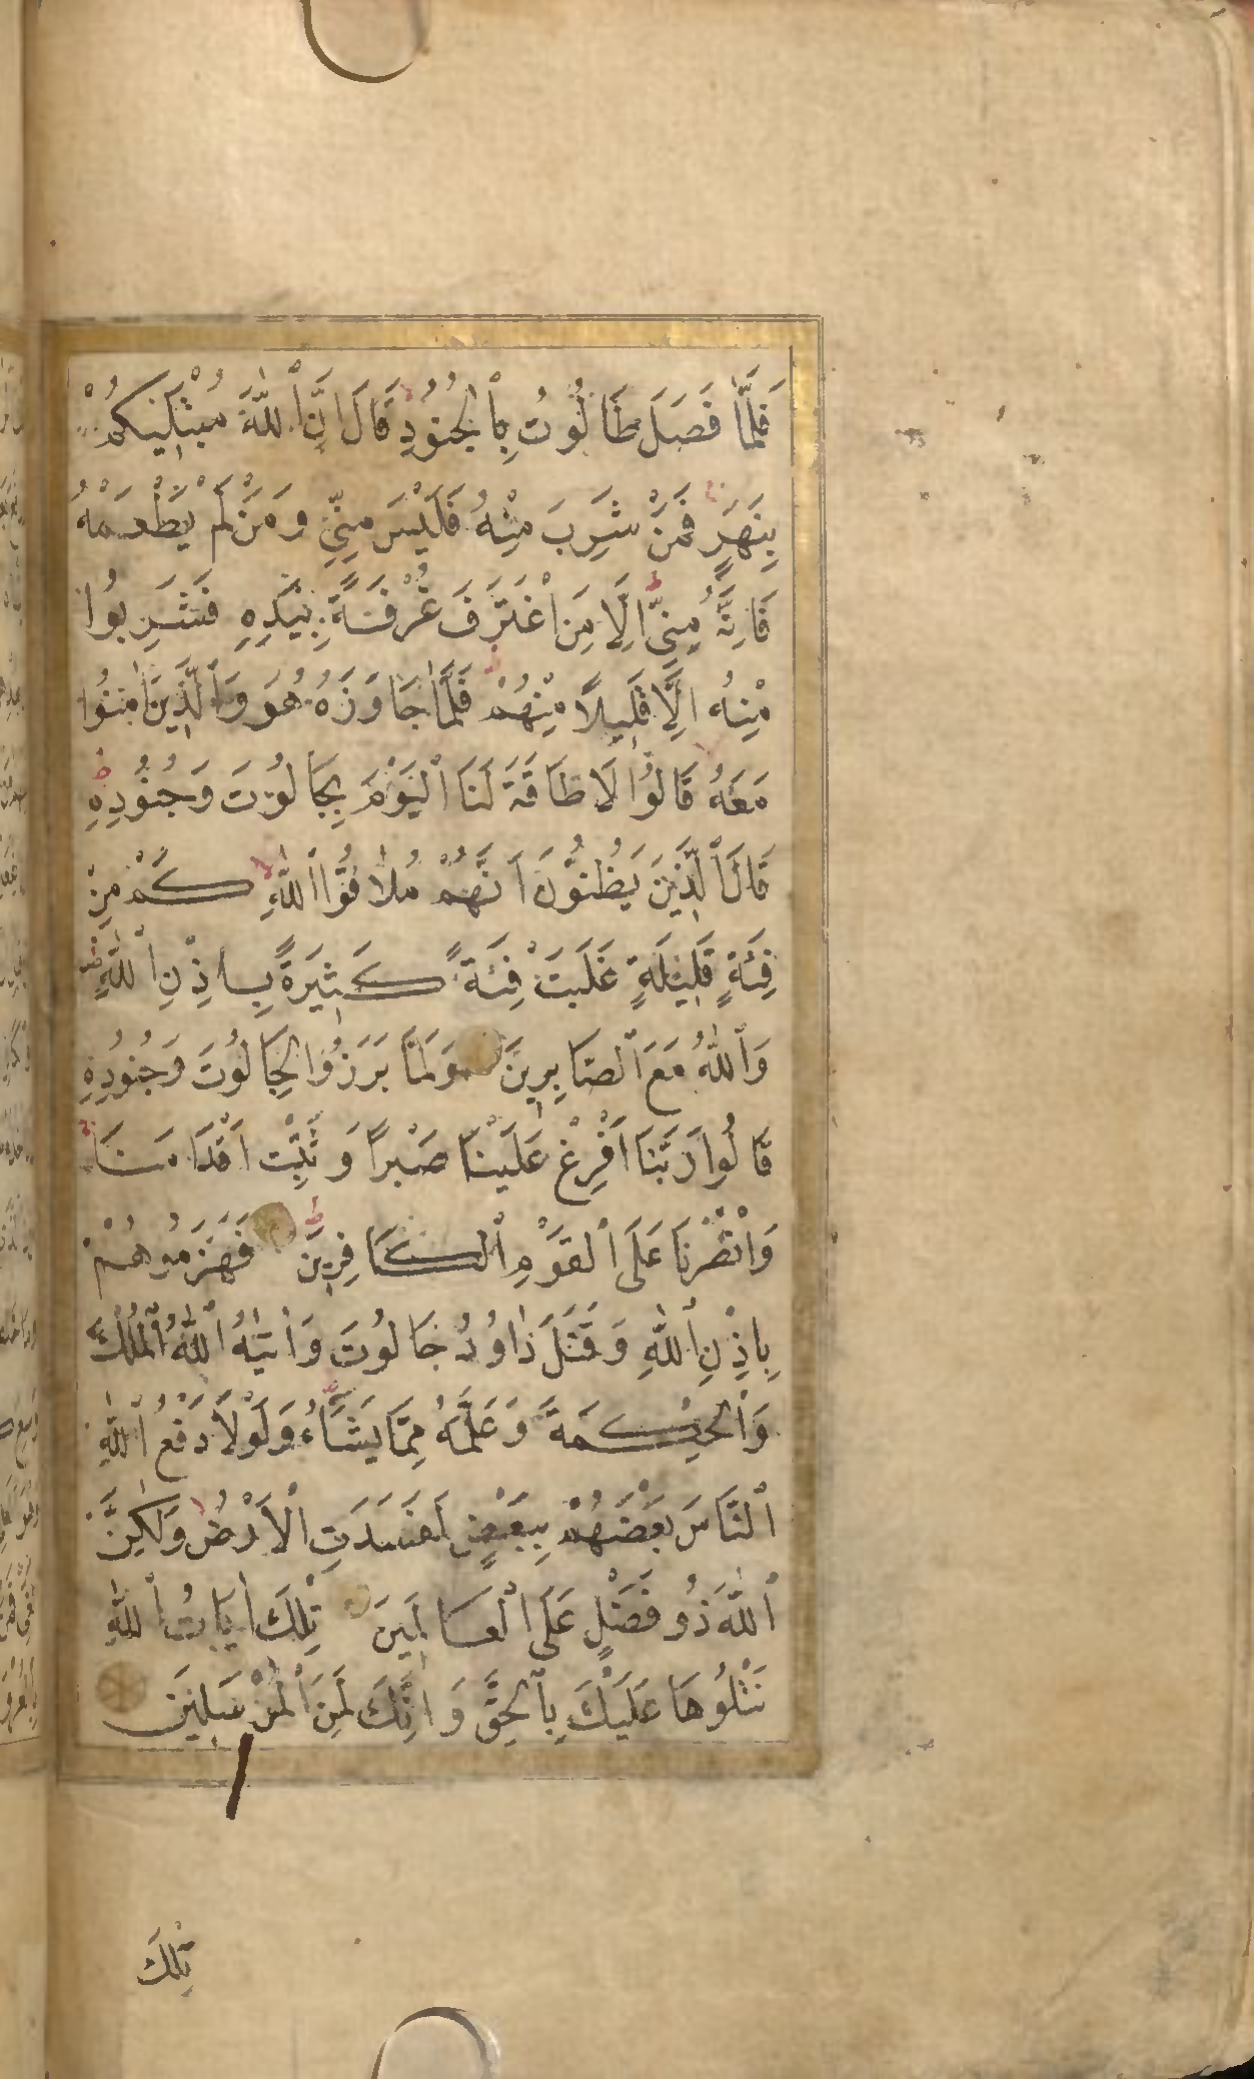 فَلَمَّا فَصَلَ طَالُوتُ بِالْجُنُودِ قَالَ اِنَّ اللّٰهَ مُبْتَلِيكُمْ
بِنَهَرٍ فَمَنْ شَرِبَ مِنْهُ فَلَيْسَ مِنِّي وَمَنْ لَمْ يَطْعَمْهُ
فَاِنَّهُ مِنِّي اِلَّا مَنِ اغْتَرَفَ غُرْفَةً بِيَدِهِ فَشَرِبُوا
مِنْهُ اِلَّا قَلِيلًا مِنْهُمْ فَلَمَّا جَاوَزَهُ هُوَ وَالَّذِينَ اٰمَنُوا
مَعَهُ قَالُوا لَا طَاقَةَ لَنَا الْيَوْمَ بِجَالُوتَ وَجُنُودِهِ
قَالَ الَّذِينَ يَظُنُّونَ اَنَّهُمْ مُلَاقُوا اللّٰهِ كَمْ مِنْ
فِئَةٍ قَلِيلَةٍ غَلَبَتْ فِئَةً كَثِيرَةً بِاِذْنِ اللّٰهِ
وَاللّٰهُ مَعَ الصَّابِرِينَ وَلَمَّا بَرَزُوا لِجَالُوتَ وَجُنُودِهِ
قَالُوا رَبَّنَا اَفْرِغْ عَلَيْنَا صَبْرًا وَثَبِّتْ اَقْدَامَنَا
وَانْصُرْنَا عَلَى الْقَوْمِ الْكَافِرِينَ فَهَزَمُوهُمْ
بِاِذْنِ اللّٰهِ وَقَتَلَ دَاوُدُ جَالُوتَ وَاٰتٰيهُ اللّٰهُ الْمُلْكَ
وَالْحِكْمَةَ وَعَلَّمَهُ مِمَّا يَشَاءُ وَلَوْلَا دَفْعُ اللّٰهِ
النَّاسَ بَعْضَهُمْ بِبَعْضٍ لَفَسَدَتِ الْاَرْضُ وَلٰكِنَّ
اللّٰهَ ذُو فَضْلٍ عَلَى الْعَالَمِينَ تِلْكَ اٰيَاتُ اللّٰهِ
نَتْلُوهَا عَلَيْكَ بِالْحَقِّ وَاِنَّكَ لَمِنَ الْمُرْسَلِينَ
تِلْكَ